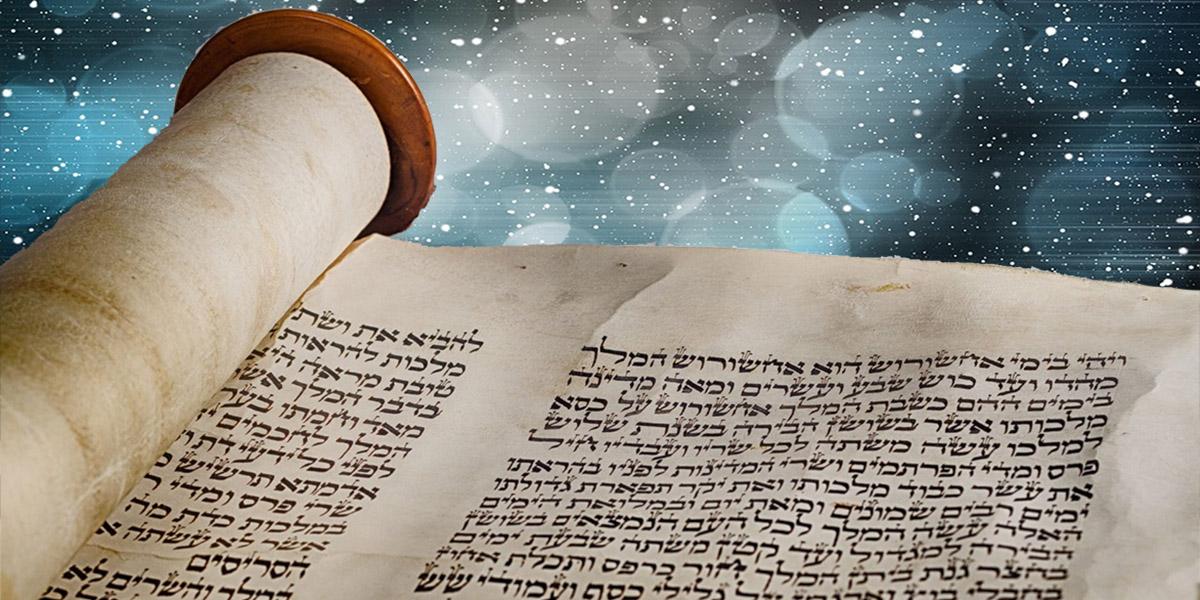 ויהי בימי אחשורוש הוא אחשורוש המלך
מהדו ועד כוש שבע ועשרים ומאה מדינה
בימים ההם כשבת המלך אחשורוש על כסא
מלכותו אשר בשושן הבירה בשנת שלוש
למלכו עשה משתה לכל שריו ועבדיו חיל
פרס ומדי הפרתמים ושרי המדינות לפניו בהראתו
את עשר כבוד מלכותו ואת יקר תפארת גדולתו
ימים רבים שמונים ומאת יום ובמלואת הימים
האלה עשה המלך לכל העם הנמצאים בשושן
הבירה למגדול ועד קטן משתה שבעת ימים
בחצר גנת ביתן המלך חור כרפס ותכלת אחוז
בחבלי בוץ וארגמן על גלילי כסף ועמודי שש
להביא את ושתי
מלכות להראות
טובת מראה היא
בדבר המלך
מאד וחמתו
המלך לחכמים
לפני כל ידעי דת
אדמתא תרשיש
שרי פרס ומדי
במלכות כדת מה
אשר לא עשתה
הסריסים
המלך והשרים